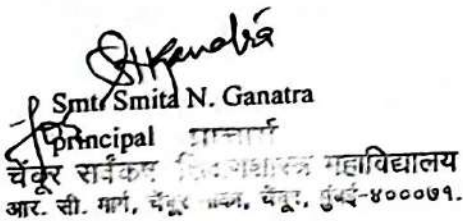 Smt. Smita N. Ganatra
principal प्राचार्य
चेंबूर सर्वंकष महाविद्यालय
आर. सी. मार्ग, चेंबूर नाका, चेंबूर, मुंबई-४०००७१.